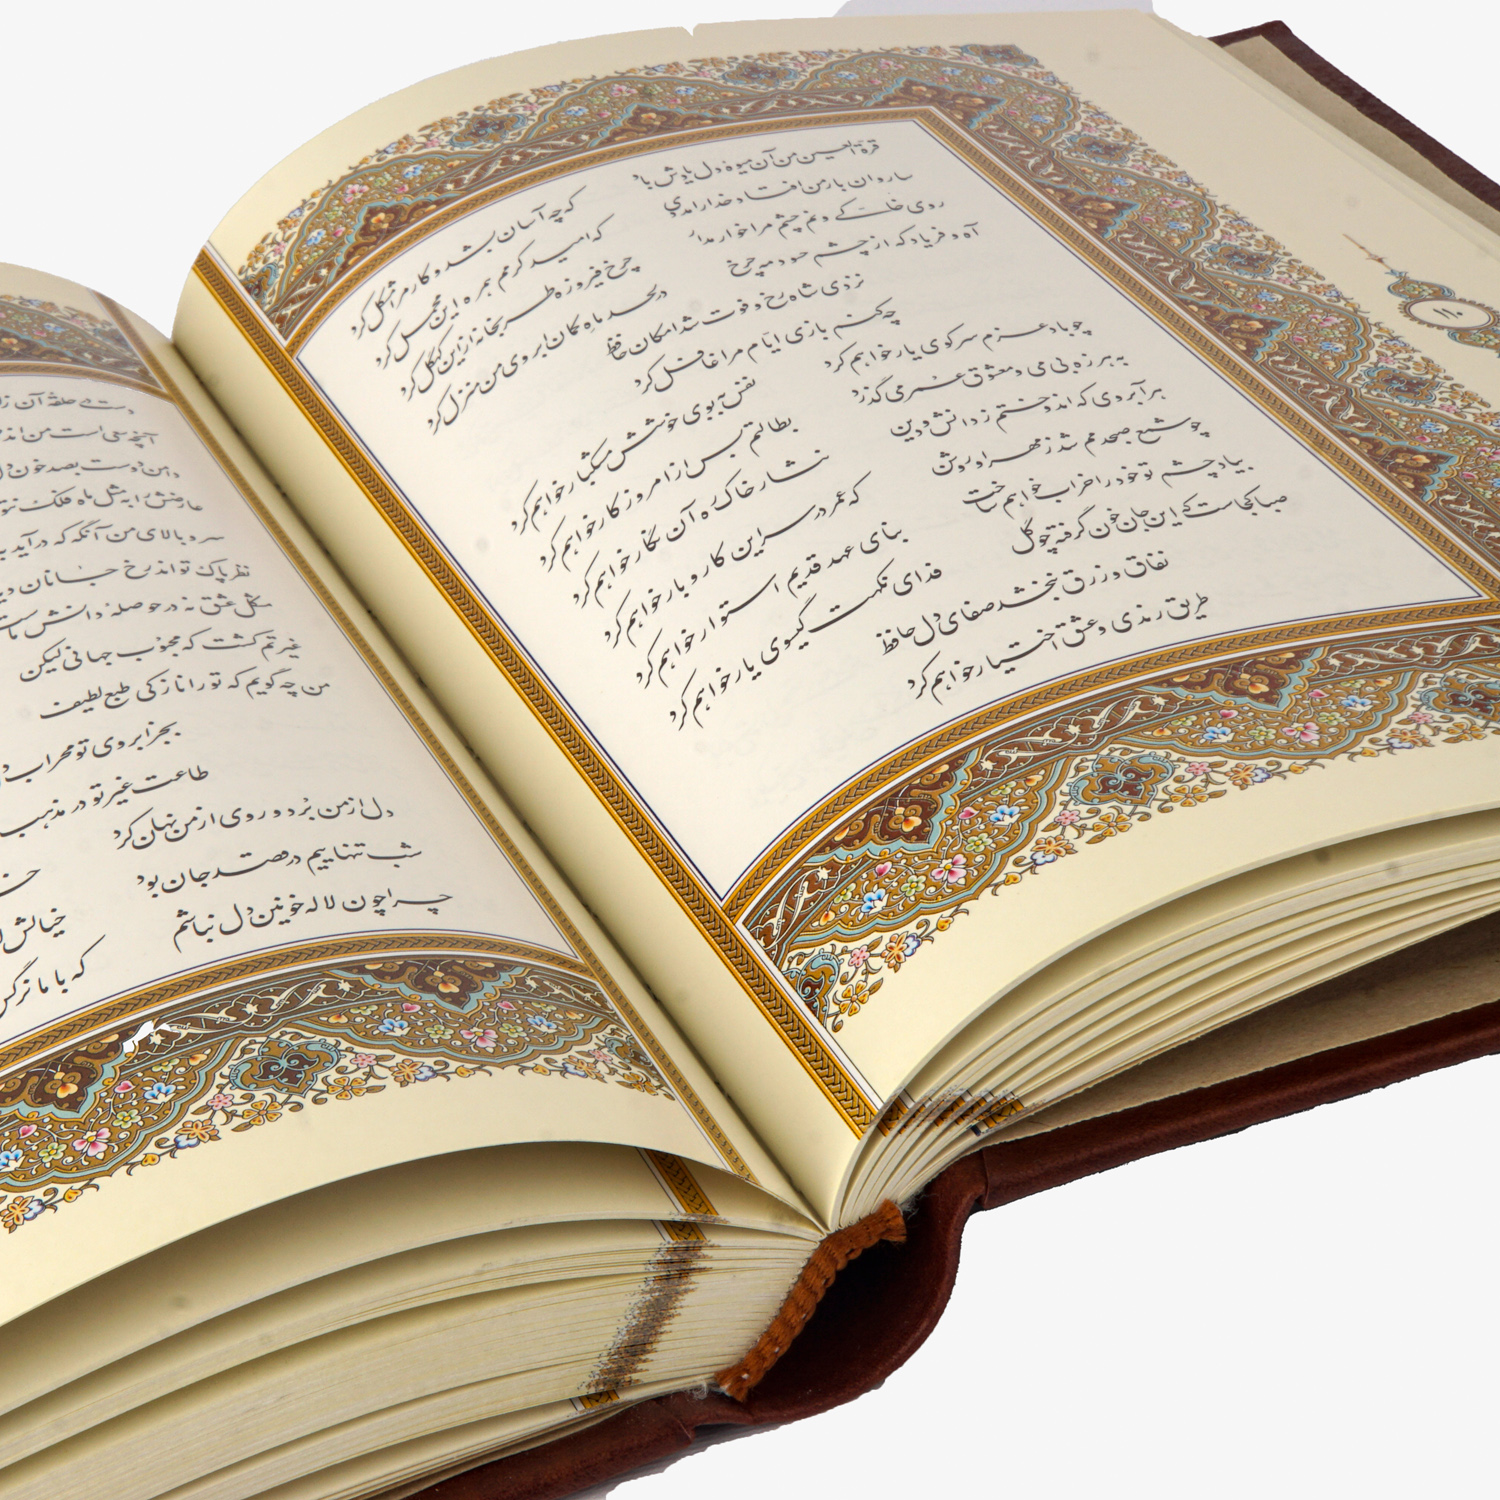 قرة العین من آن میوه دل یادش باد که چه آسان بشد و کار مرا مشکل کرد
ساروان بار من افتاد خدا را مددی که امید کرمم همره این محمل کرد
روی خاکی و نم چشم مرا خوار مدار چرخ فیروزه طربخانه ازین کهگل کرد
آه و فریاد که از چشم حسود مه چرخ در لحد ماه کمان ابروی من منزل کرد
نزدی شاه رخ و فوت شد امکان حافظ
چه کنم بازی ایام مرا غافل کرد
چو باد عزم سر کوی یار خواهم کرد نفس به بوی خوشش مشکبار خواهم کرد
به هرزه بی می و معشوق عمر می گذرد بطالتم بس از امروز کار خواهم کرد
هر آبروی که اندوختم ز دانش و دین نثار خاک ره آن نگار خواهم کرد
چو شمع صبحدمم شد ز مهر او روشن که عمر در سر این کار و بار خواهم کرد
بیاد چشم تو خود را خراب خواهم ساخت بنای عهد قدیم استوار خواهم کرد
صبا کجاست که این جان خون گرفته چو گل فدای نکهت گیسوی یار خواهم کرد
نفاق و زرق نبخشد صفای دل حافظ
طریق رندی و عشق اختیار خواهم کرد
۱۱۰
دست در حلقه آن
آنچه سعی است من
دامن دوست بصد خون
عارضش را بمثل ماه فلک
سرو بالای من آنگه که درآید
نظر پاک تواند رخ جانان
مشکل عشق نه در حوصله دانش
غیرتم کشت که محبوب جهانی لیکن
من چه گویم که تو را نازکی طبع لطیف
بجز ابروی تو محراب
طاعت غیر تو در مذهب
دل از من برد و روی از من نهان کرد
شب تنهاییم در قصد جان بود خیالش
چرا چون لاله خونین دل نباشم که با ما نرگس